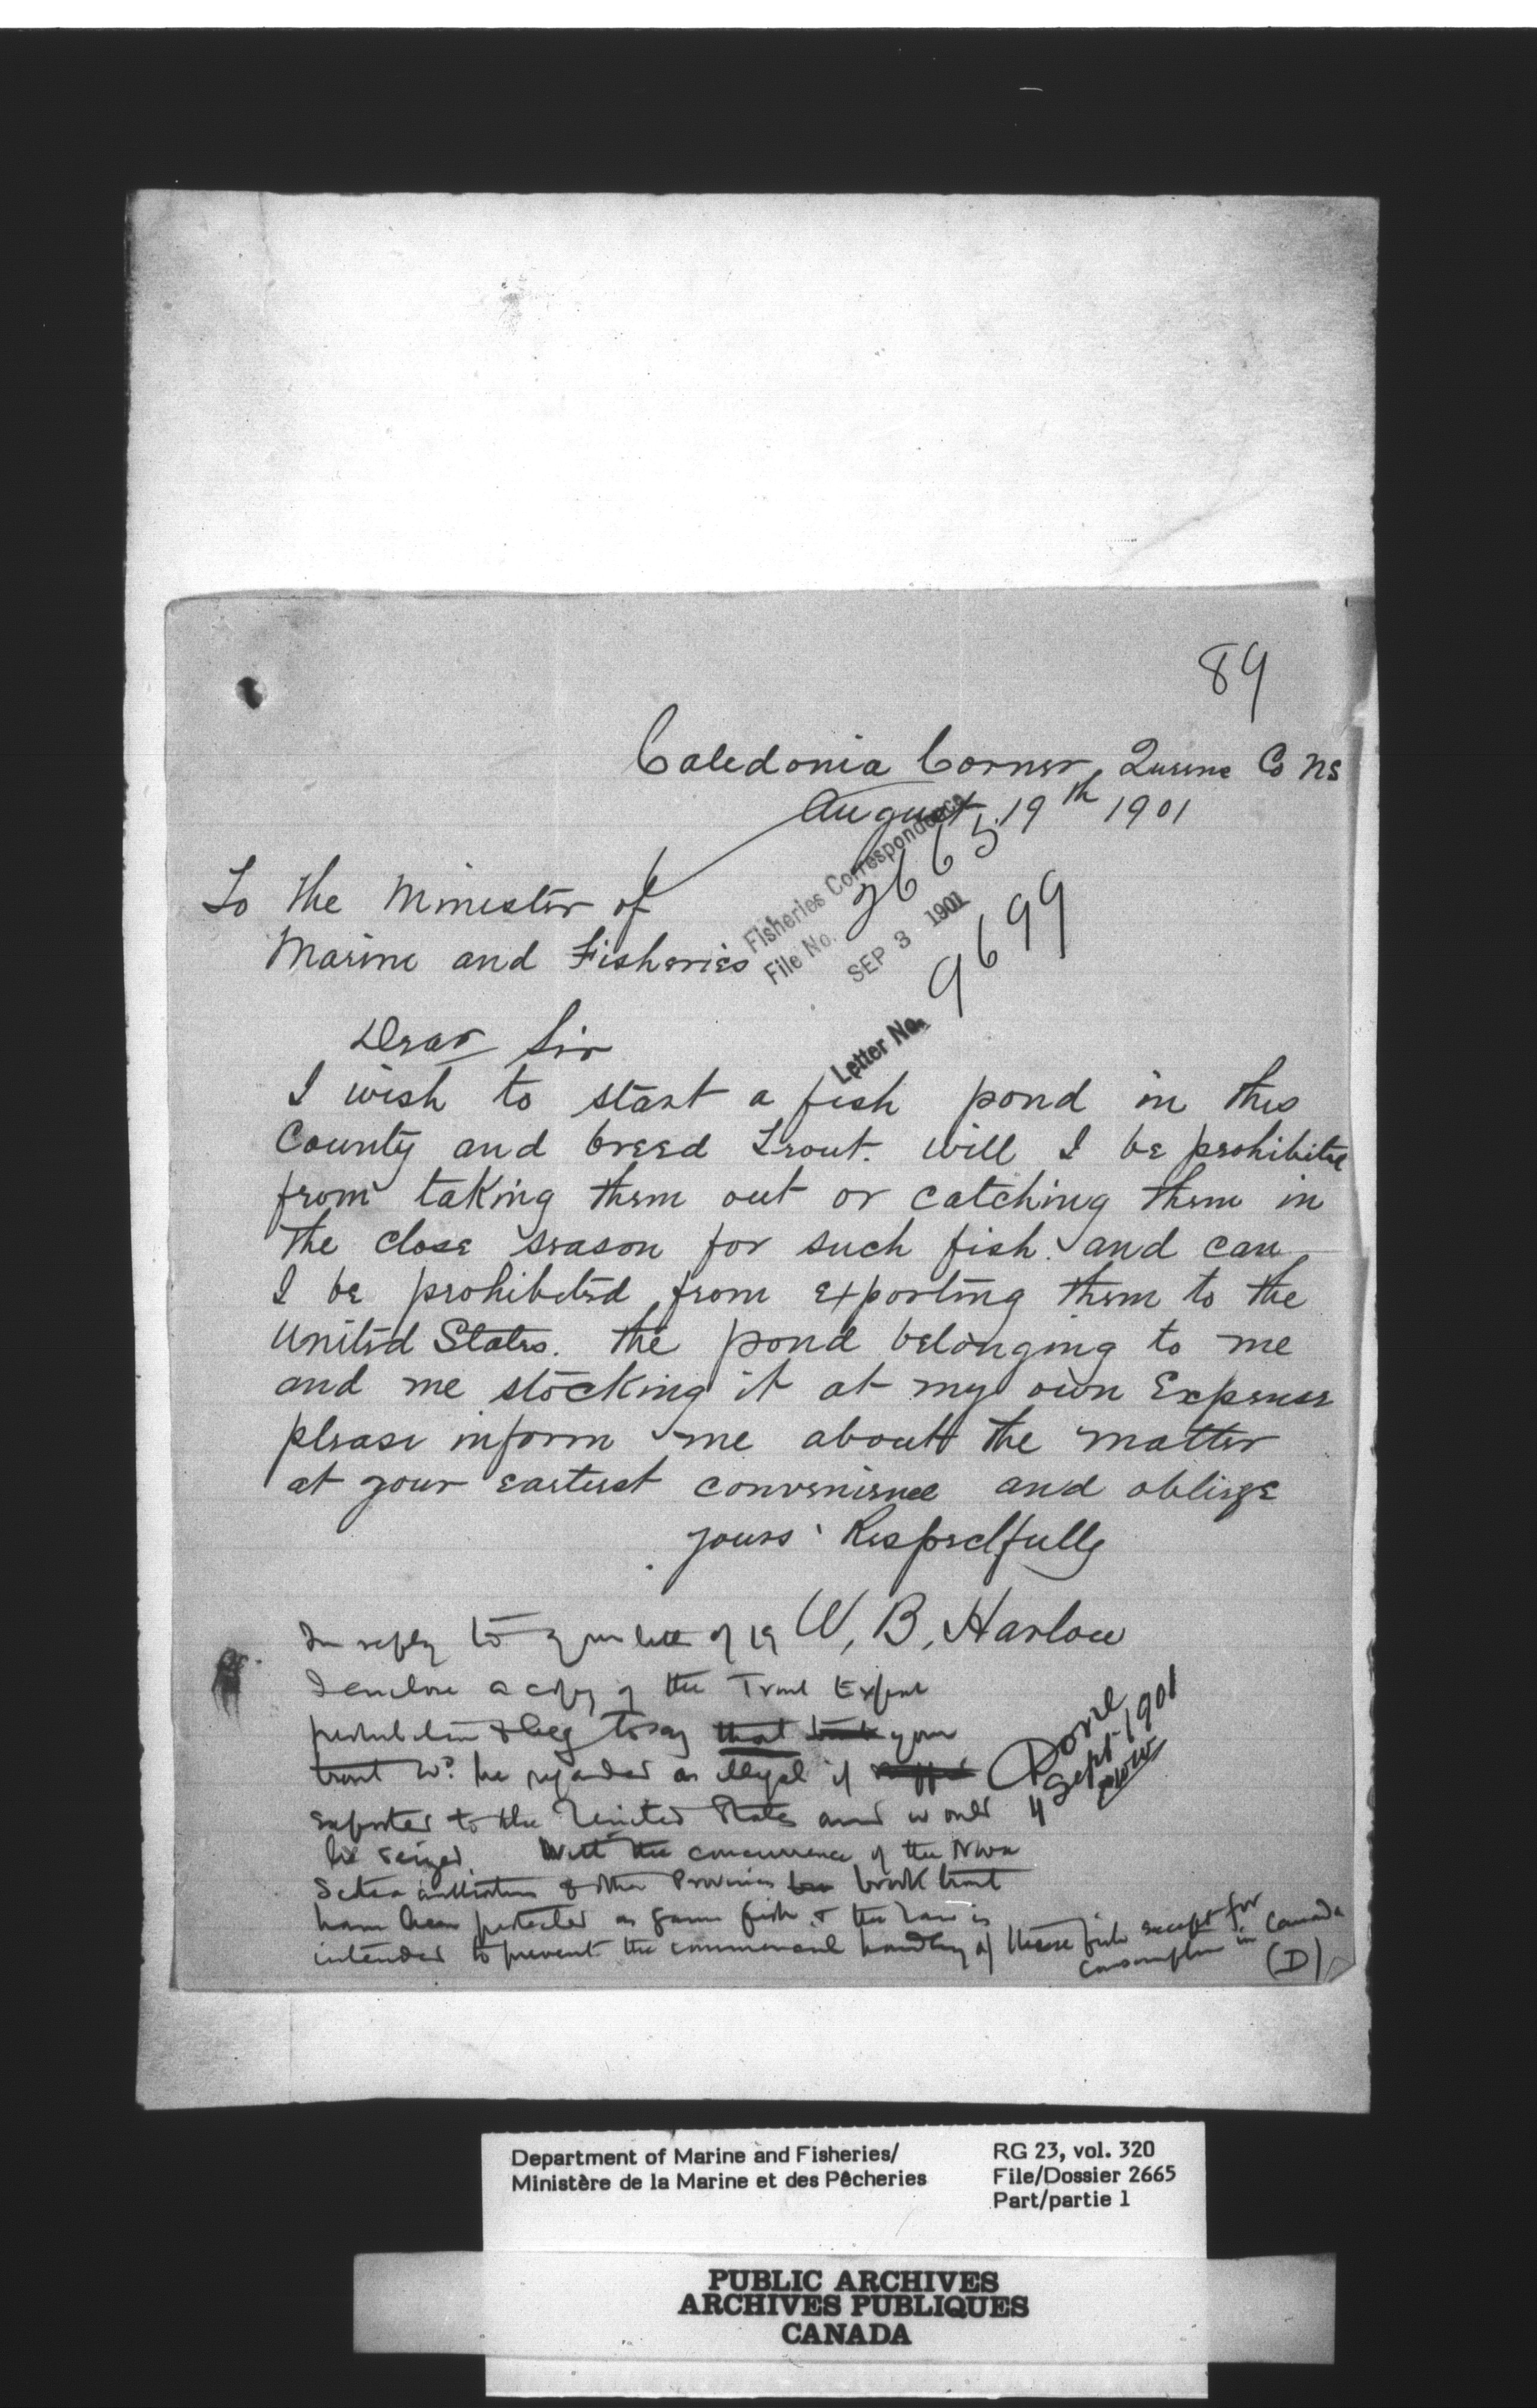 89
Caledonia Corner, Queens Co NS
August 19th 1901
Fisheries Correspondence
File No. 2665
SEP 3 1901
Letter No. 9699
To the Minister of
Marine and Fisheries
Dear Sir
I wish to start a fish pond in this
County and breed Trout. will I be prohibited
from taking them out or catching them in
the close season for such fish. and can
I be prohibited from exporting them to the
United States. the pond belonging to me
and me stocking it at my own Expense
please inform me about the matter
at your earliest convenience and oblige
yours Respectfully
W. B. Harlow
In reply to your letter of 19
I enclose a copy of the Trout Export
prohibition & beg to say that your
trout wd. be regarded as illegal if
exported to the United States and would
be seized. With the concurrence of the Nova
Scotia authorities & other Provinces brook trout
have been protected as game fish & the law is
intended to prevent the commercial handling of these fish except for
consumption in Canada
(D)
Done
4 Sept 1901
Department of Marine and Fisheries/
Ministère de la Marine et des Pêcheries
RG 23, vol. 320
File/Dossier 2665
Part/partie 1
PUBLIC ARCHIVES
ARCHIVES PUBLIQUES
CANADA